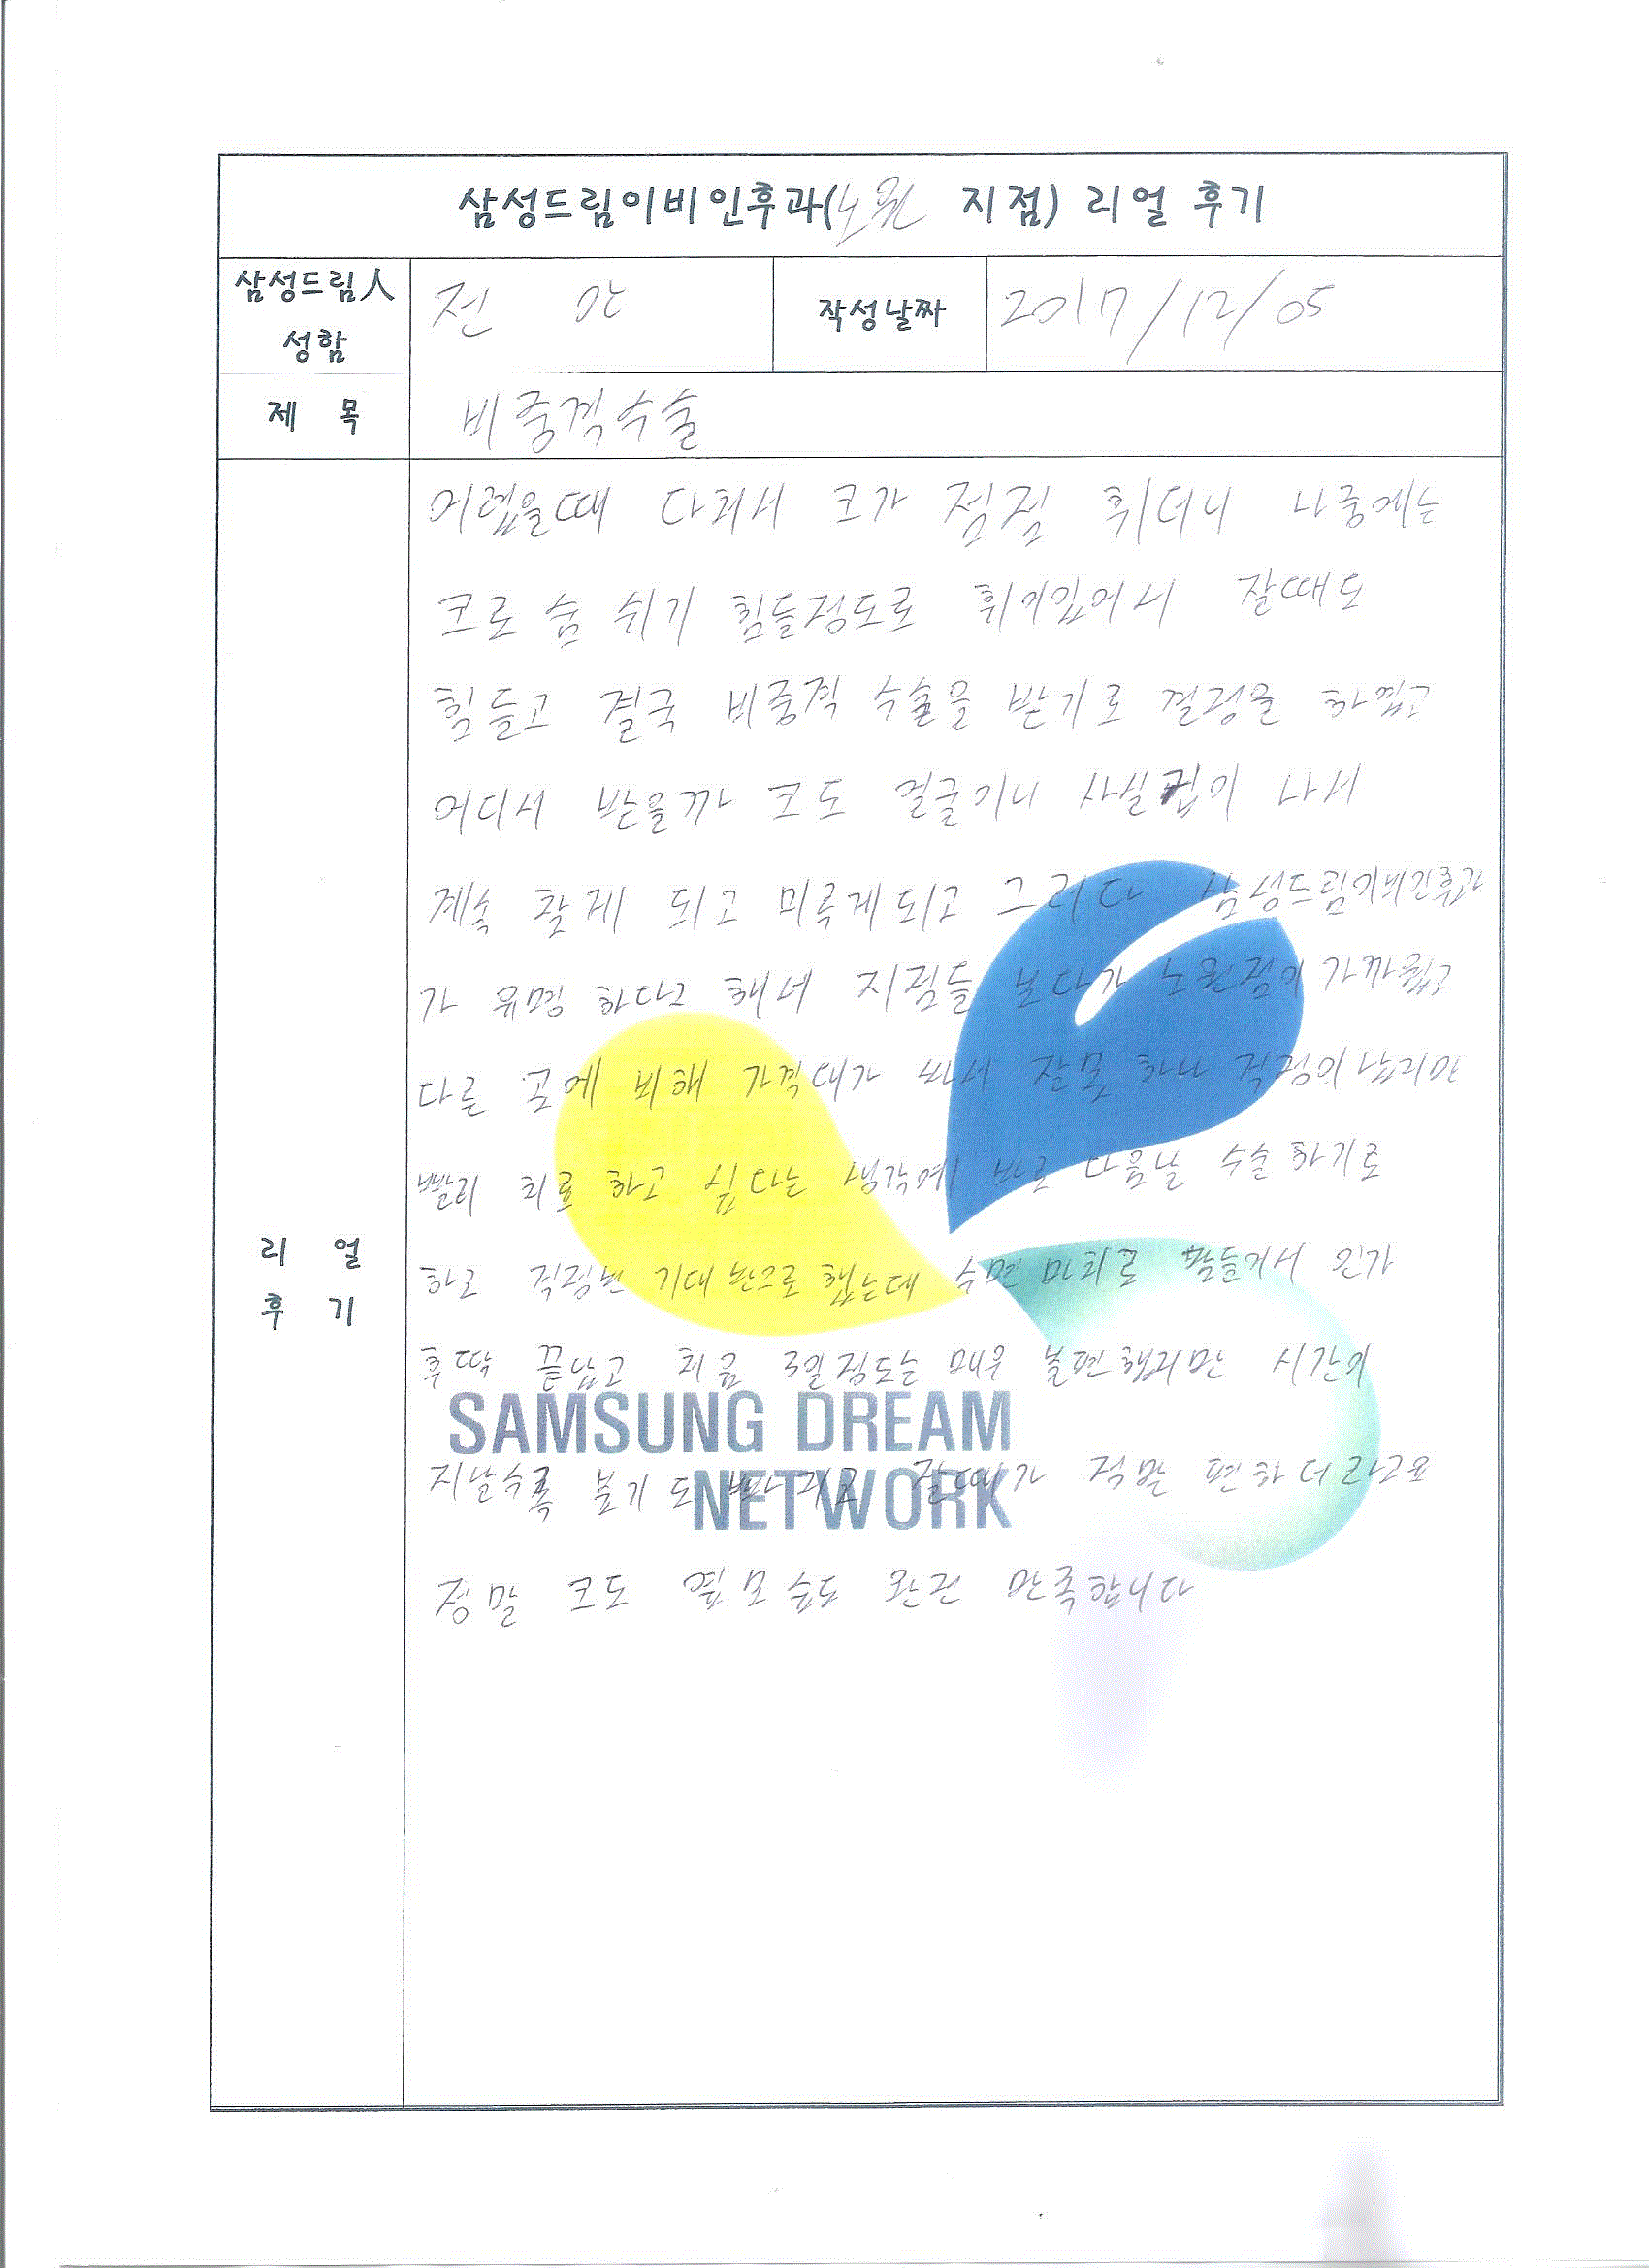 삼성드림이비인후과(노원 지점) 리얼 후기
삼성드림人 성함
전
작성날짜
2017/12/05
제 목
비중격수술
리 얼 후 기
어렸을때 다쳐서 코가 점점 휘더니 나중에는
코로 숨 쉬기 힘들정도로 휘어있어서 잘때도
힘들고 결국 비중격 수술을 받기로 결정을 하였고
어디서 받을까 코도 얼굴이니 사실 겁이 나서
계속 찾게 되고 미루게되고 그러다 삼성드림이비인후과
가 유명 하다고 해서 지점들 보다가 노원점이 가까웠고
다른 곳에 비해 가격대가 싸서 잘못 하나 걱정이 났지만
빨리 치료 하고 싶다는 생각에 바로 다음날 수술하기로
하고 걱정반 기대 반으로 했는데 수면 마취로 잠들어서 인가
후딱 끝났고 처음 3일정도는 매우 불편했지만 시간이
지날수록 붓기도 빠지고 잘때가 정말 편하더라고요
정말 코도 옆모습도 완전 만족합니다
SAMSUNG DREAM
NETWORK